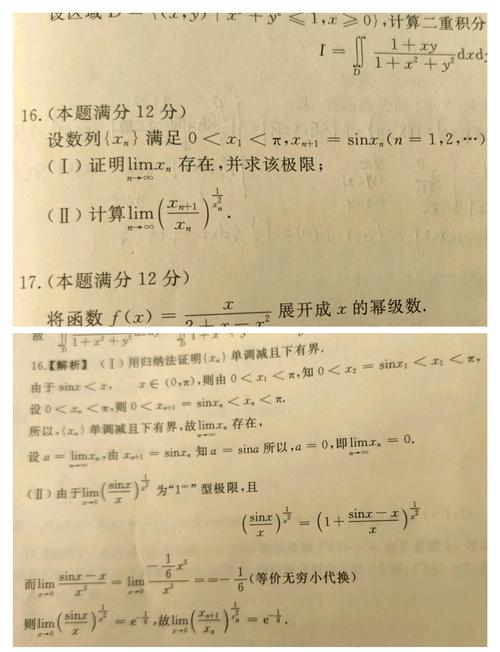 设区域 D = {(x,y) | x² + y² ≤ 1, x ≥ 0}, 计算二重积分
I = ∬_D (1 + xy)/(1 + x² + y²) dxdy
16. (本题满分 12 分)
设数列{xₙ} 满足 0 < x₁ < π, xₙ₊₁ = sinxₙ (n = 1,2,…)
(Ⅰ) 证明 lim_{n→∞} xₙ 存在, 并求该极限;
(Ⅱ) 计算 lim_{n→∞} (xₙ₊₁/xₙ)^{1/xₙ²}.
17. (本题满分 12 分)
将函数 f(x) = x/(2 + x − x²) 展开成 x 的幂级数.
16.【解析】 (Ⅰ) 用归纳法证明{xₙ} 单调减且下有界.
由于 sinx < x, x ∈ (0,π), 则由 0 < x₁ < π, 知 0 < x₂ = sinx₁ < x₁ < π,
设 0 < xₙ < π, 则 0 < xₙ₊₁ = sinxₙ < xₙ < π.
所以, {xₙ} 单调减且下有界, 故 lim_{n→∞} xₙ 存在,
设 a = lim_{n→∞} xₙ, 由 xₙ₊₁ = sinxₙ 知 a = sina 所以, a = 0, 即 lim_{n→∞} xₙ = 0.
(Ⅱ) 由于 lim_{x→0} (sinx/x)^{1/x²} 为“1^∞”型极限, 且
(sinx/x)^{1/x²} = (1 + (sinx − x)/x)^{1/x²}
而 lim_{x→0} (sinx − x)/x³ = lim_{x→0} (−(1/6)x³)/x³ == −1/6 (等价无穷小代换)
则 lim_{x→0} (sinx/x)^{1/x²} = e^{−1/6}, 故 lim_{x→0} (xₙ₊₁/xₙ)^{1/xₙ²} = e^{−1/6}.